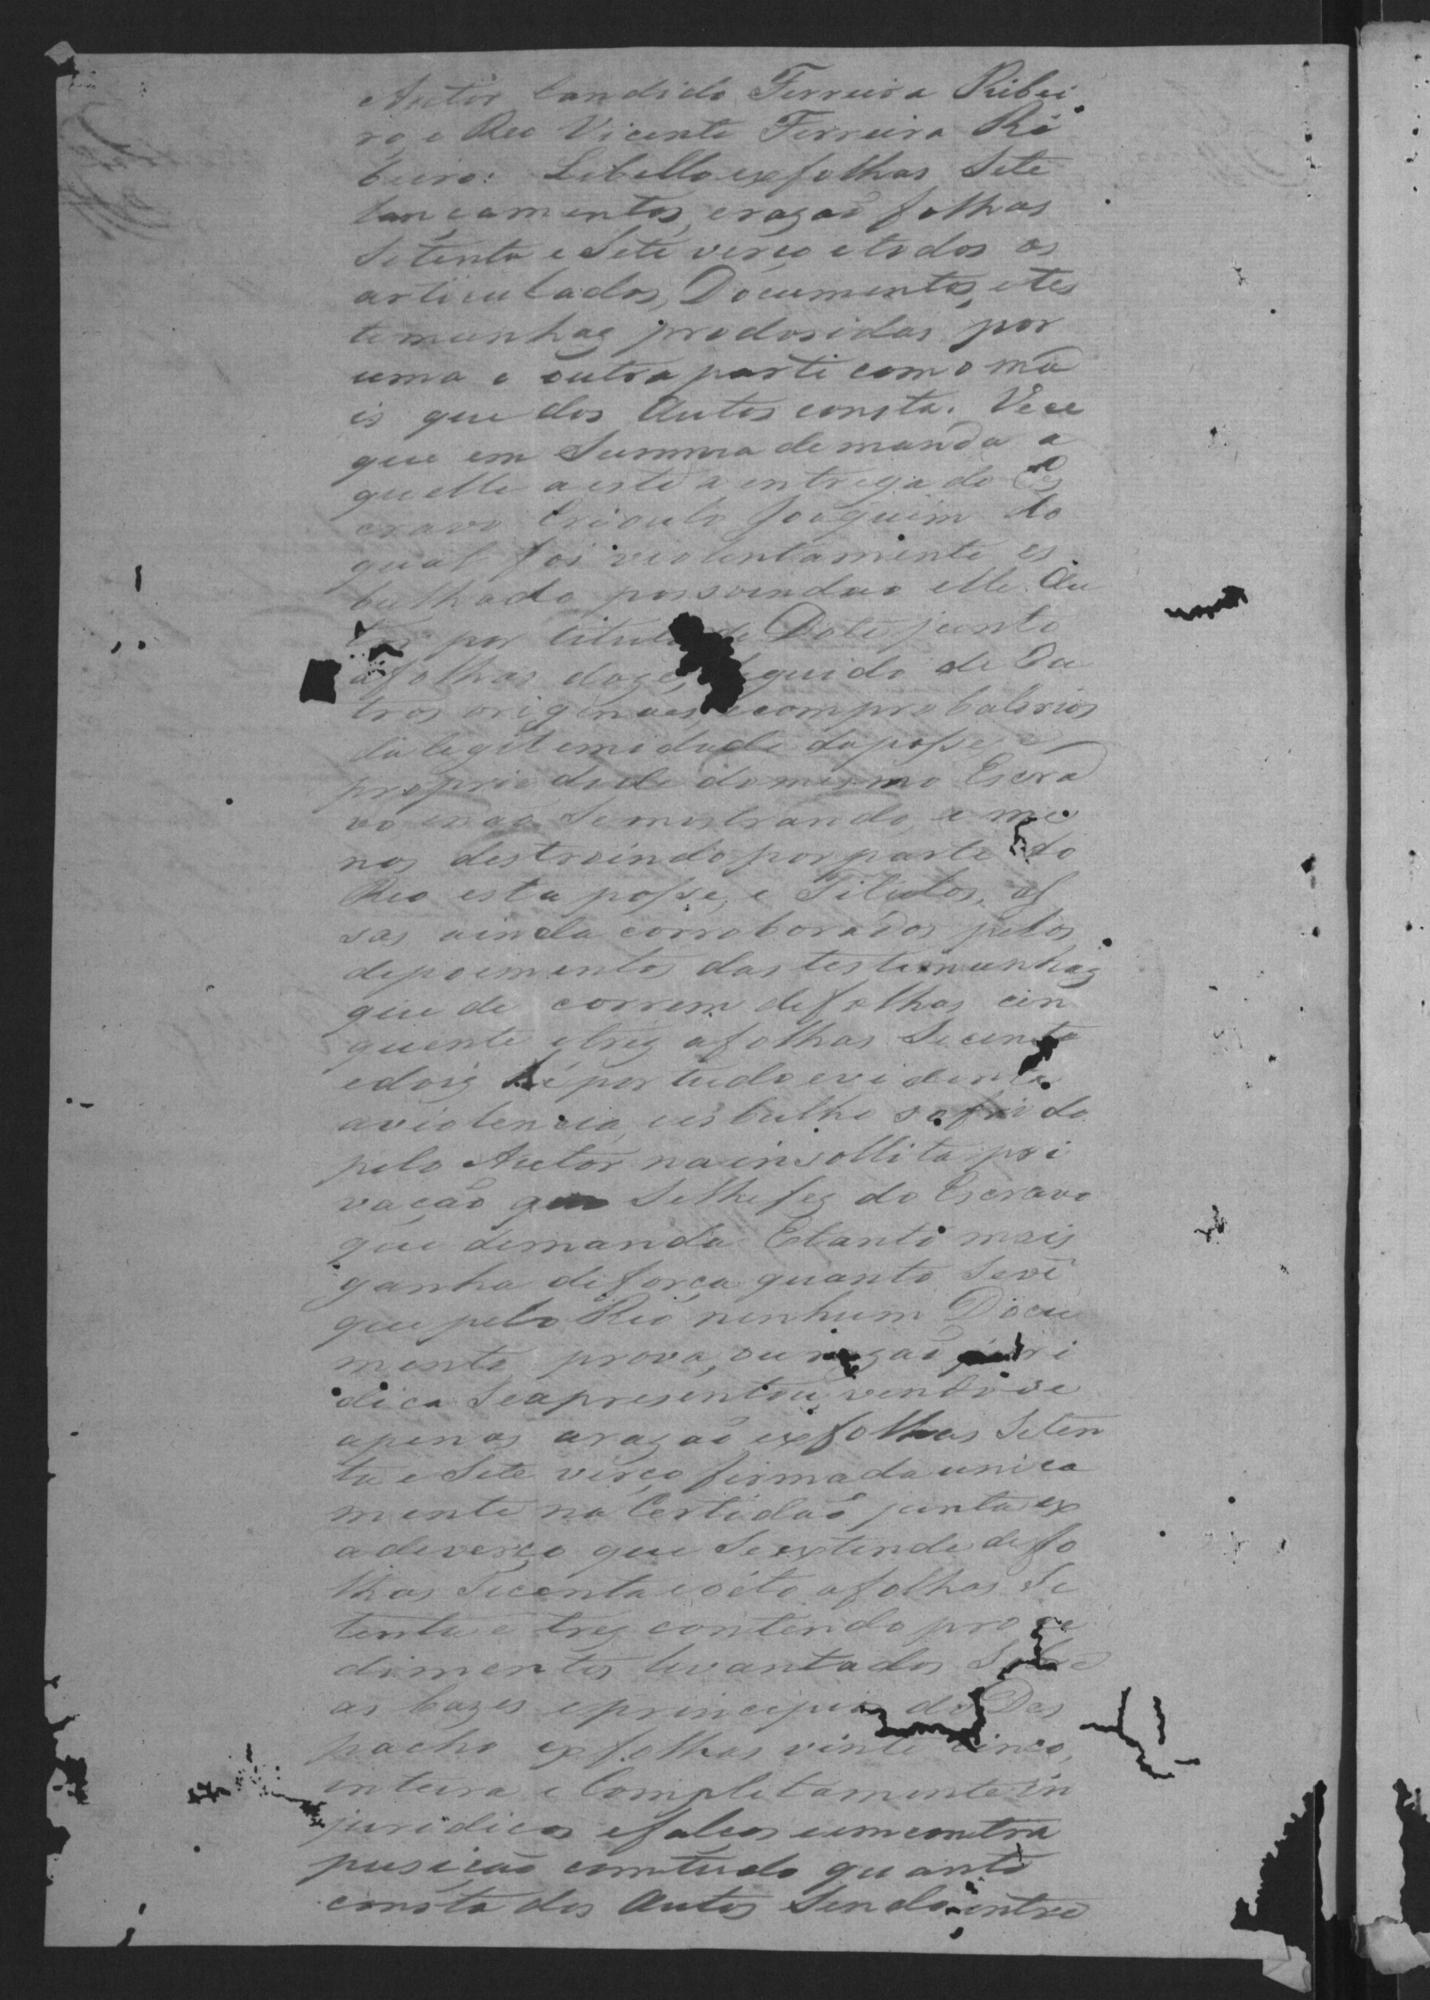 Autor Candido Ferreira Ribei
ro, e Reo Vicente Ferreira Ri
beiro: Libello exfolhas Sete
lançamentos, erazaõ folhas
Setenta e Sete verço etodos os
articulados, Documentos, etes
temunhas prodosidas por
uma e outra parte como ma
is que dos Autos consta. Vece
que em Summa demanda a
quelle aeste a entrega do Es
cravo Crioulo Joaquim do
qual foi violentamente es
bulhado possuindo elle Au
tor por titulo de Dote junto
afolhas doze, seguido de Ou
tros originaes, ecomprobatorios
da legitemidade daposse, e
propriedade domesmo Escra
vo enaõ Semostrando, e me
nos destroindo porparte do
Reo esta posse, e Titulos, al
sas ainda corroborados pelos
depoimentos das testemunhas
que de correm defolhas cin
quente etres afolhas Secenta
edois hé por tudo evidente
aviolencia, eesbulho sofrido
pelo Autor nainsollita pri
vacaõ que Selhefez do Escravo
que demanda Etanto mais
ganha deforça quanto Sevê
que pelo Reo nenhum Docu
mento, prova, ou razaõ juri
dica Seapresentou, vendo se
apenas arazaõ exfolhas Seten
ta e Sete verço firmada unica
mente na Certidaõ junta ex
adeverço que Seextende defo
lhas Secenta eoito afolhas Se
tenta e tres contendo proce
dimentos levantados Sobre
as bazes eprincipios do Des
pacho exfolhas vinte cinco,
inteira e Completamente in
juridicos efalços eemcontra
pusiçaõ comtudo quanto
consta dos Autos Sendo entre